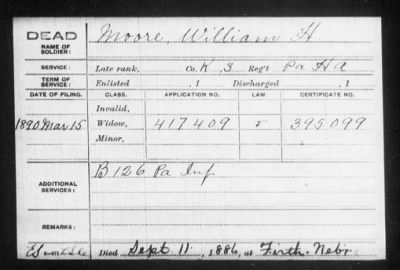 DEAD
NAME OF SOLDIER: Moore, William H
SERVICE: Late rank, Co. K, 3 Reg't Pa H A
TERM OF SERVICE: Enlisted , 1 Discharged , 1
DATE OF FILING. CLASS. APPLICATION NO. LAW. CERTIFICATE NO.
Invalid,
1890 Mar 15 Widow, 417409 395099
Minor,
ADDITIONAL SERVICES: B 126 Pa Inf.
REMARKS:
Died Sept 11, 1886, at Firth. Nebr